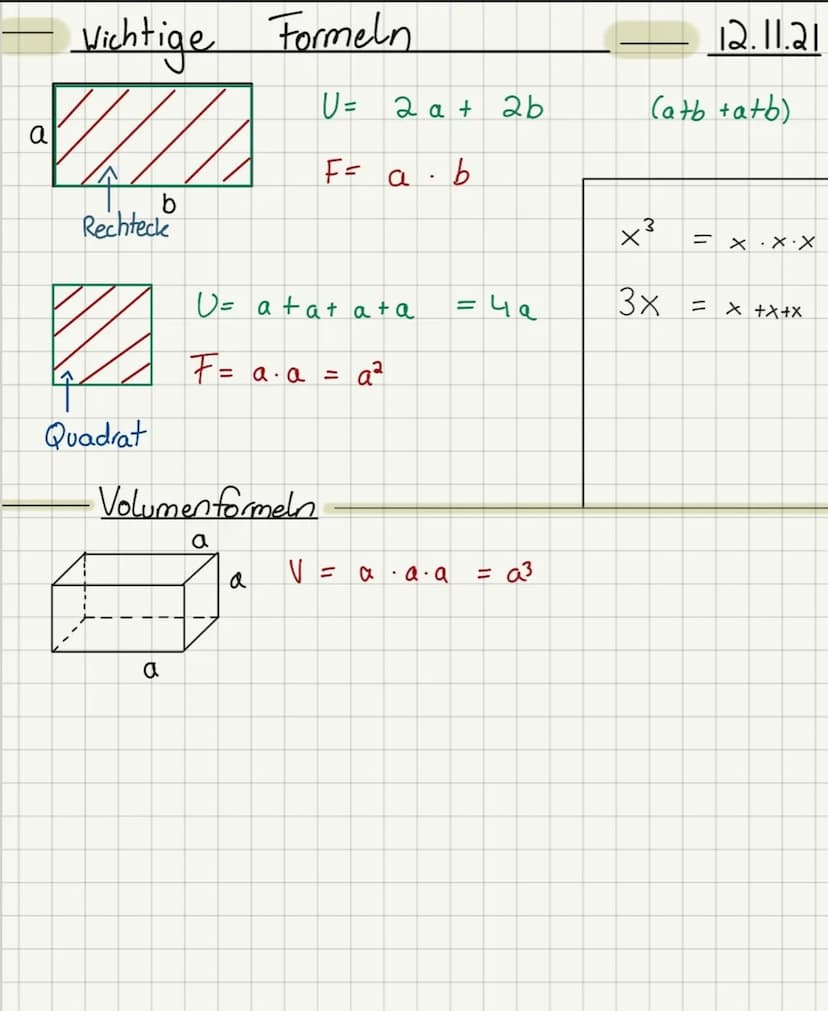 Wichtige Formeln 12.11.21
U= 2a + 2b (a+b +a+b)
a
F= a · b
b
Rechteck
x³ = x · x · x
3x = x +x+x
U= a +a+ a+a = 4a
F= a · a = a²
Quadrat
Volumenformeln
a
a
V = a · a · a = a³
a